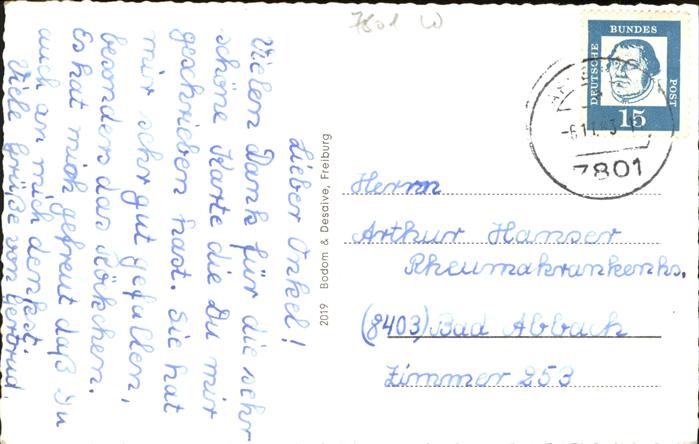 Lieber Onkel!
Vielen Dank für die sehr
schöne Karte die Du mir
geschrieben hast. Sie hat
mir sehr gut gefallen,
besonders das Röckchen.
Es hat mich gefreut daß Du
auch an mich denkst.
Viele Grüße von Gertrud
2019 Bodom & Desaive, Freiburg
7801 W
DEUTSCHE
BUNDES
POST
15
-6.11.
7801
Herrn
Arthur Hanser
Rheumakrankenhs.
(8403) Bad Abbach
Zimmer 253